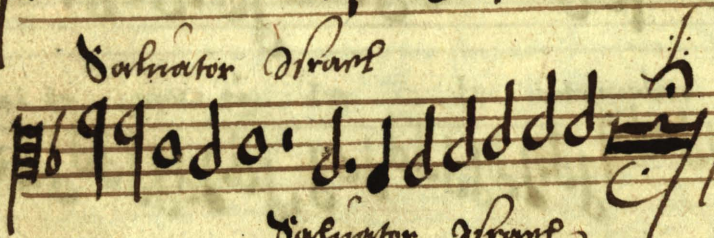 Saluator Israel
Saluator Israel